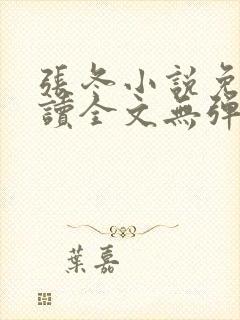 張冬小說免
讀全文無彈
葉嘉